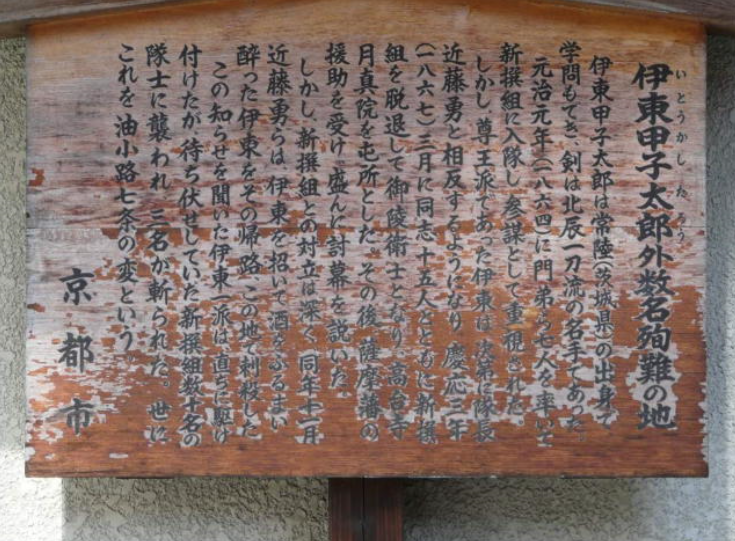 伊東甲子太郎外数名殉難の地
いとうかしたろう
伊東甲子太郎は常陸(茨城県)の出身で
学問もでき、剣は北辰一刀流の名手であった。
元治元年(一八六四)に門弟ら七人を率いて
新撰組に入隊し、参謀として重視された。
しかし、尊王派であった伊東は、次第に隊長
近藤勇と相反するようになり、慶応三年
(一八六七)三月に同志十五人とともに新撰
組を脱退して御陵衛士となり、高台寺
月真院を屯所とした。その後、薩摩藩の
援助を受け、盛んに討幕を説いた。
しかし、新撰組との対立は深く、同年十一月
近藤勇らは、伊東を招いて酒をふるまい
酔った伊東をその帰路、この地で刺殺した。
この知らせを聞いた伊東一派は、直ちに駆け
付けたが、待ち伏せしていた新撰組数十名の
隊士に襲われ、三名が斬られた。世に
これを油小路七条の変という。
京都市